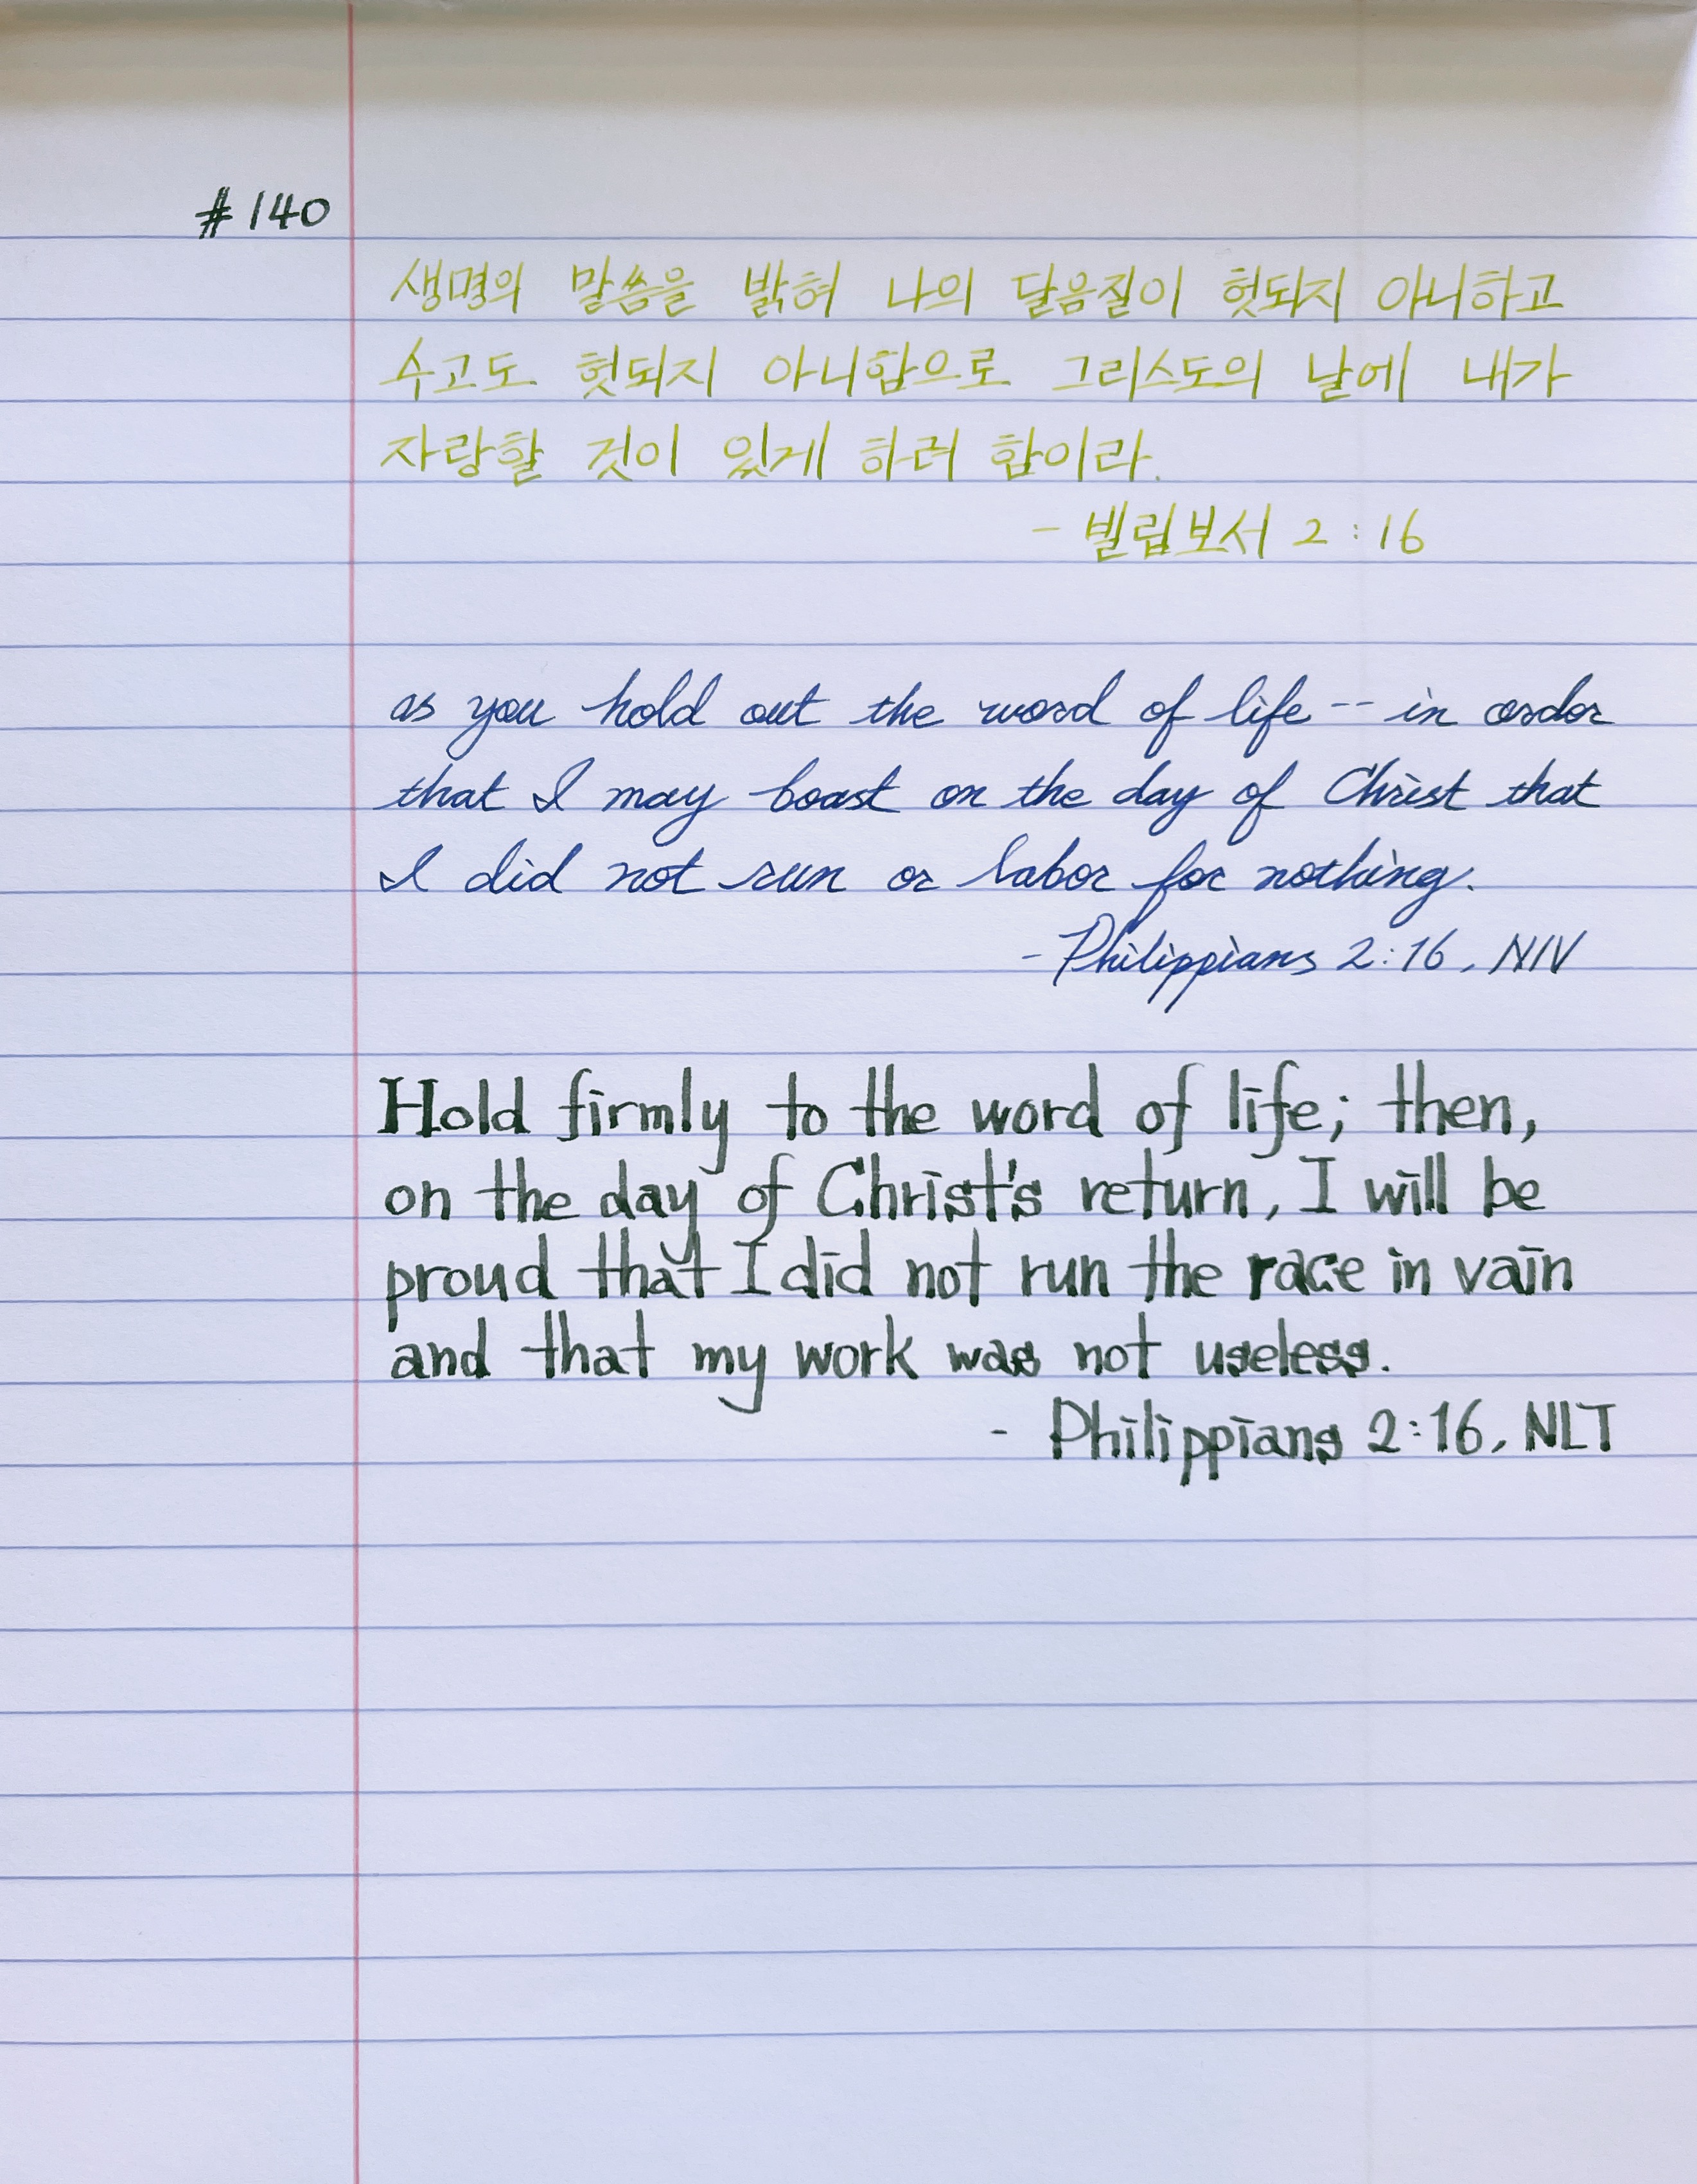 #140
생명의 말씀을 밝혀 나의 달음질이 헛되지 아니하고
수고도 헛되지 아니함으로 그리스도의 날에 내가
자랑할 것이 있게 하려 함이라.
- 빌립보서 2:16
as you hold out the word of life -- in order
that I may boast on the day of Christ that
I did not run or labor for nothing.
- Philippians 2:16, NIV
Hold firmly to the word of life; then,
on the day of Christ's return, I will be
proud that I did not run the race in vain
and that my work was not useless.
- Philippians 2:16, NLT